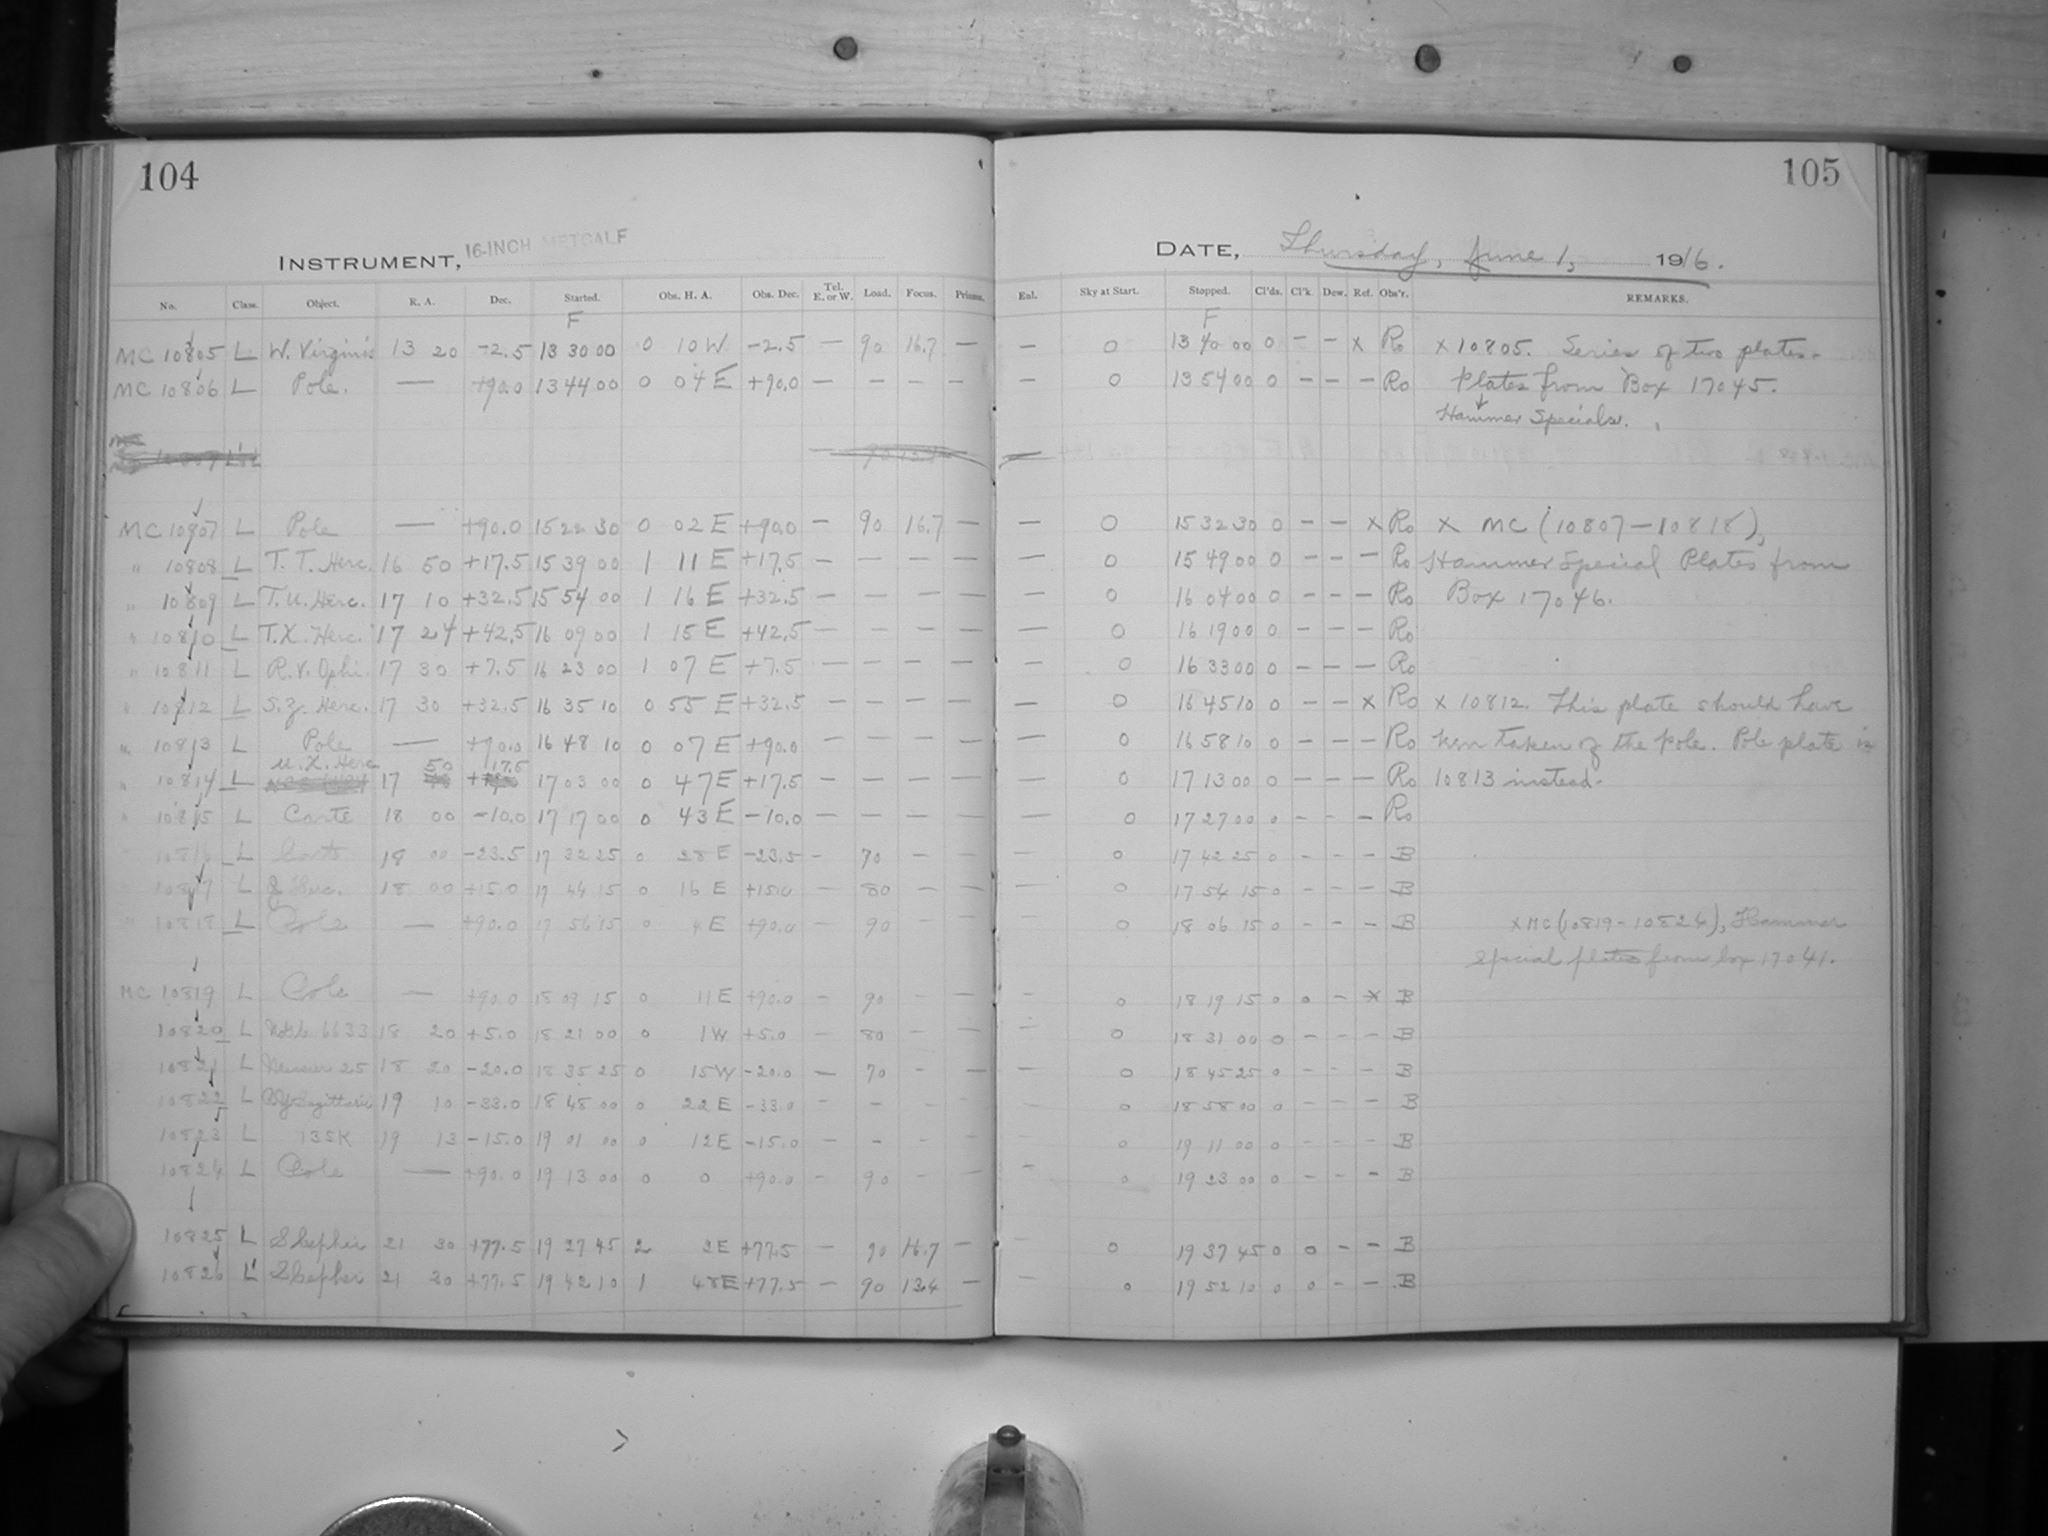 104
105
INSTRUMENT, 16-INCH METCALF
DATE, Thursday, June 1, 1916.
No. Class. Object. R. A. Dec. Started. Obs. H. A. Obs. Dec. Tel. E. or W. Load. Focus. Prisms. Enl. Sky at Start. Stopped. Cl'ds. Cl'k. Dew. Ref. Obs'r. REMARKS.
F F
MC 10805 L W. Virginis 13 20 -2.5 13 30 00 0 10 W -2.5 — 90 16.7 — — 0 13 40 00 0 — — x Ro x 10805. Series of two plates.
MC 10806 L Pole. — +90.0 13 44 00 0 04 E +90.0 — — — — — 0 13 54 00 0 — — — Ro Plates from Box 17045.
Hammer Specials.
MC 10807 L Pole — +90.0 15 22 30 0 02 E +90.0 — 90 16.7 — — 0 15 32 30 0 — — x Ro x MC (10807—10818),
" 10808 L T. T. Herc. 16 50 +17.5 15 39 00 1 11 E +17.5 — — — — — 0 15 49 00 0 — — — Ro Hammer Special Plates from
" 10809 L T. U. Herc. 17 10 +32.5 15 54 00 1 16 E +32.5 — — — — — 0 16 04 00 0 — — — Ro Box 17046.
" 10810 L T. X. Herc. 17 24 +42.5 16 09 00 1 15 E +42.5 — — — — — 0 16 19 00 0 — — — Ro
" 10811 L R. V. Ophi. 17 30 +7.5 16 23 00 1 07 E +7.5 — — — — — 0 16 33 00 0 — — — Ro
" 10812 L S. Z. Herc. 17 30 +32.5 16 35 10 0 55 E +32.5 — — — — — 0 16 45 10 0 — — x Ro x 10812. This plate should have
" 10813 L Pole — +90.0 16 48 10 0 07 E +90.0 — — — — — 0 16 58 10 0 — — — Ro been taken of the pole. Pole plate is
U. X. Herc. 50 17.5
" 10814 L 17 + 17 03 00 0 47 E +17.5 — — — — — 0 17 13 00 0 — — — Ro 10813 instead.
" 10815 L Carte 18 00 -10.0 17 17 00 0 43 E -10.0 — — — — — 0 17 27 00 0 — — — Ro
" 10816 L Carte 18 00 -23.5 17 32 25 0 28 E -23.5 — 70 — — — 0 17 42 25 0 — — — B
" 10817 L Herc. 18 00 +15.0 17 44 15 0 16 E +15.0 — 80 — — — 0 17 54 15 0 — — — B
" 10818 L Pole — +90.0 17 56 15 0 4 E +90.0 — 90 — — — 0 18 06 15 0 — — — B x MC (10819-10824), Hammer
Special plates from box 17041.
MC 10819 L Pole — +90.0 18 09 15 0 11 E +90.0 — 90 — — — 0 18 19 15 0 0 — x B
10820 L 6633 18 20 +5.0 18 21 00 0 1 W +5.0 — 80 — — — 0 18 31 00 0 — — — B
10821 L Messier 25 18 20 -20.0 18 35 25 0 15 W -20.0 — 70 — — — 0 18 45 25 0 — — — B
10822 L Sagittarii 19 10 -33.0 18 48 00 0 22 E -33.0 — — — — — 0 18 58 00 0 — — — B
10823 L 135K 19 13 -15.0 19 01 00 0 12 E -15.0 — — — — — 0 19 11 00 0 — — — B
10824 L Pole — +90.0 19 13 00 0 0 +90.0 — 90 — — — 0 19 23 00 0 — — — B
10825 L S Cephei 21 30 +77.5 19 27 45 2 2 E +77.5 — 90 16.7 — — 0 19 37 45 0 0 — — B
10826 L' S Cephei 21 30 +77.5 19 42 10 1 48 E +77.5 — 90 13.4 — — 0 19 52 10 0 0 — — B